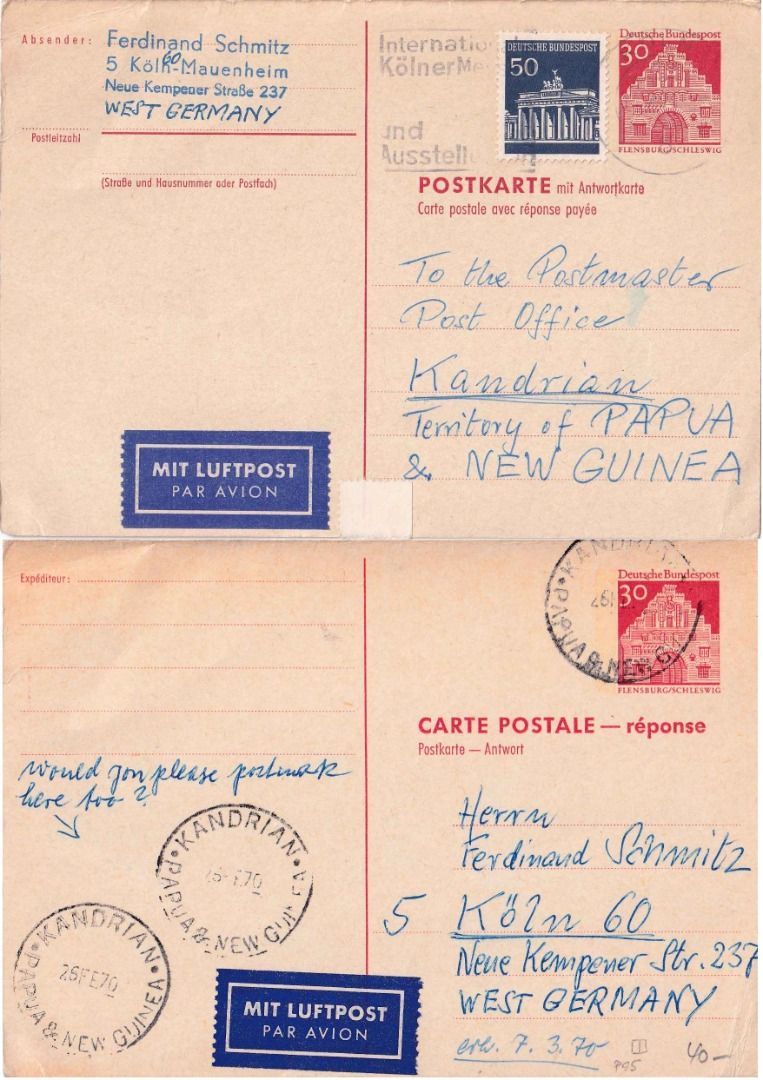 Absender:
Ferdinand Schmitz
5 Köln-Mauenheim
60
Neue Kempener Straße 237
WEST GERMANY
Postleitzahl
(Straße und Hausnummer oder Postfach)
Internatio
Kölner Me
und
Ausstell
DEUTSCHE BUNDESPOST
50
Deutsche Bundespost
30
FLENSBURG/SCHLESWIG
POSTKARTE mit Antwortkarte
Carte postale avec réponse payée
To the Postmaster
Post Office
Kandrian
Territory of PAPUA
& NEW GUINEA
MIT LUFTPOST
PAR AVION
Expéditeur:
KANDRIAN
26F
PAPUA & NEW GU
Deutsche Bundespost
30
FLENSBURG/SCHLESWIG
CARTE POSTALE — réponse
Postkarte — Antwort
would you please postmark
here too?
KANDRIAN
26FE70
PAPUA & NEW GUIN
KANDRIAN
26FE70
PAPUA & NEW GUINEA
MIT LUFTPOST
PAR AVION
Herrn
Ferdinand Schmitz
5 Köln 60
Neue Kempener Str. 237
WEST GERMANY
erh. 7. 3. 70
P95
40-